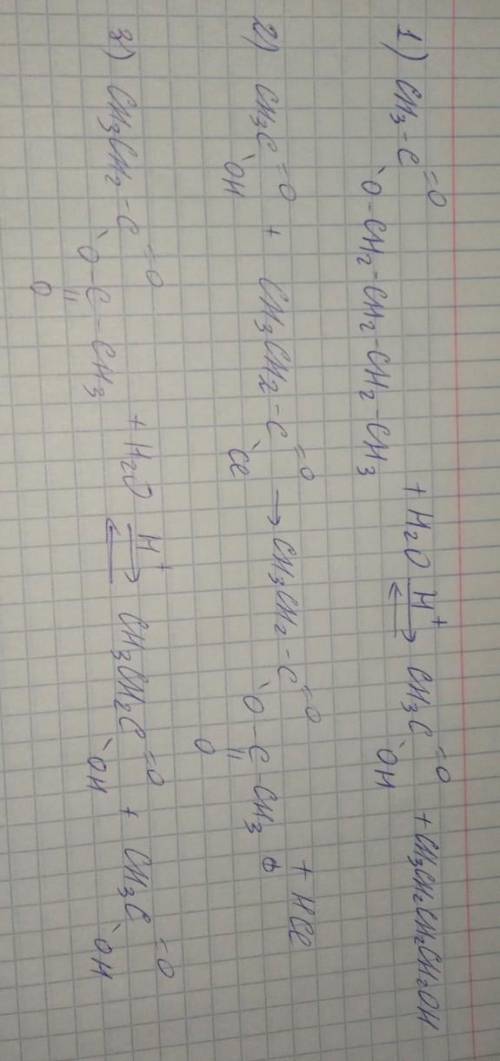 1) CH₃-C=O
O-CH₂-CH₂-CH₂-CH₃ + H₂O H⁺ ⇌ CH₃C=O
OH + CH₃CH₂CH₂CH₂OH
2) CH₃C=O
OH + CH₃CH₂-C=O
Cl → CH₃CH₂-C=O
O-C-CH₃ + HCl
=
O
3) CH₃CH₂-C=O
O-C-CH₃ + H₂O H⁺ ⇌ CH₃CH₂C=O
=
O
OH + CH₃C=O
OH